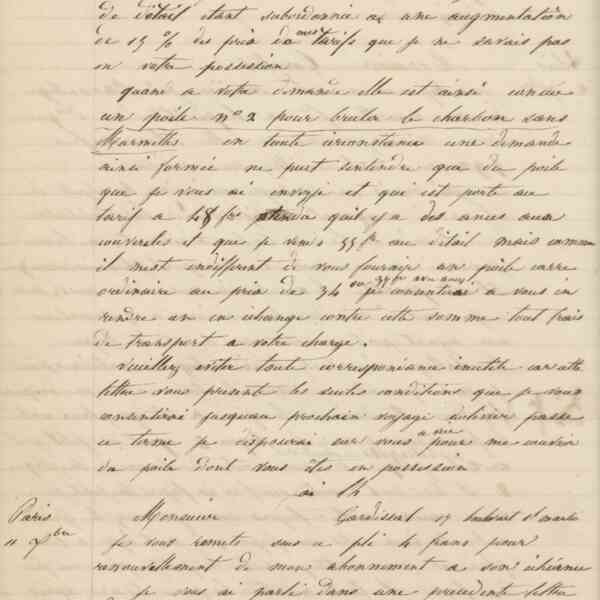 de détail étant subordonnée a une augmentation
de 15 % des prix de mes tarifs que je ne savais pas
en votre possession
quand a votre demande elle est ainsi concue
un poële n° 2 pour bruler le charbon sans
Marmitte en toute circonstance une demande
ainsi formée ne peut sentendre que du poële
que je vous ai envoyé et qui est porté au
tarif a 48 frs quil y a des anses aux
couvercles et que je vends 55 f au détail mais comme
il mest indifférent de vous fournir un poële carré
ordinaire au prix de 34 ou 37 fr avec anses je consentirai a vous en
rendre un en echange contre cette somme tout frais
de transport a votre charge.
Veuillez eviter toute correspondance inutile car cette
lettre vous presente les seules conditions que je vous
consentirai jusquau prochain voyage dolivier passé
ce terme je disposerai sur vous a vue pour me couvrir
du poële dont vous êtes en possession
Paris
11 Xbre
Monsieur Gardissart 17 boulevart St martin
je vous remets sous ce pli 4 frans pour
renouvellement de mon abonnement a son échéance
je vous ai parlé dans une precedente lettre